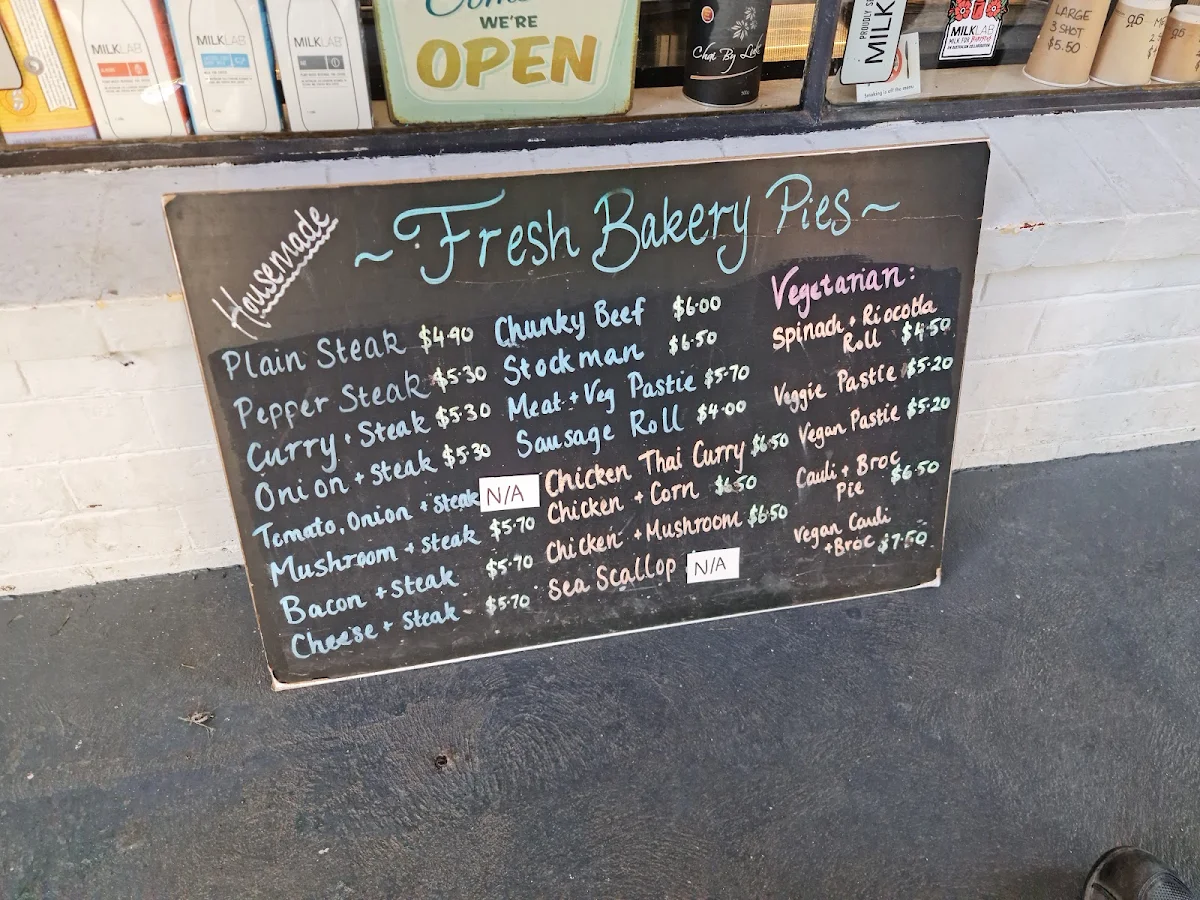 Come
WE'RE
OPEN
MILKLAB
MILKLAB
MILKLAB
PROUDLY
MILK
MILKLAB
LARGE
3 SHOT
$5.50
Housemade
~Fresh Bakery Pies~
Plain Steak $4.90
Pepper Steak $5.30
Curry + Steak $5.30
Onion + Steak $5.30
Tomato, Onion + Steak N/A
Mushroom + Steak $5.70
Bacon + Steak $5.70
Cheese + Steak $5.70
Chunky Beef $6.00
Stockman $6.50
Meat + Veg Pastie $5.70
Sausage Roll $4.00
Chicken Thai Curry $6.50
Chicken + Corn $6.50
Chicken + Mushroom $6.50
Sea Scallop N/A
Vegetarian:
Spinach + Riocotta
Roll $4.50
Veggie Pastie $5.20
Vegan Pastie $5.20
Cauli + Broc
Pie $6.50
Vegan Cauli
+Broc $7.50